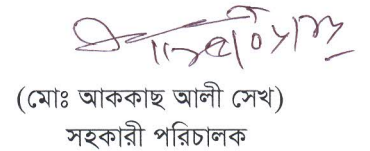 (মোঃ আককাছ আলী সেখ)
সহকারী পরিচালক